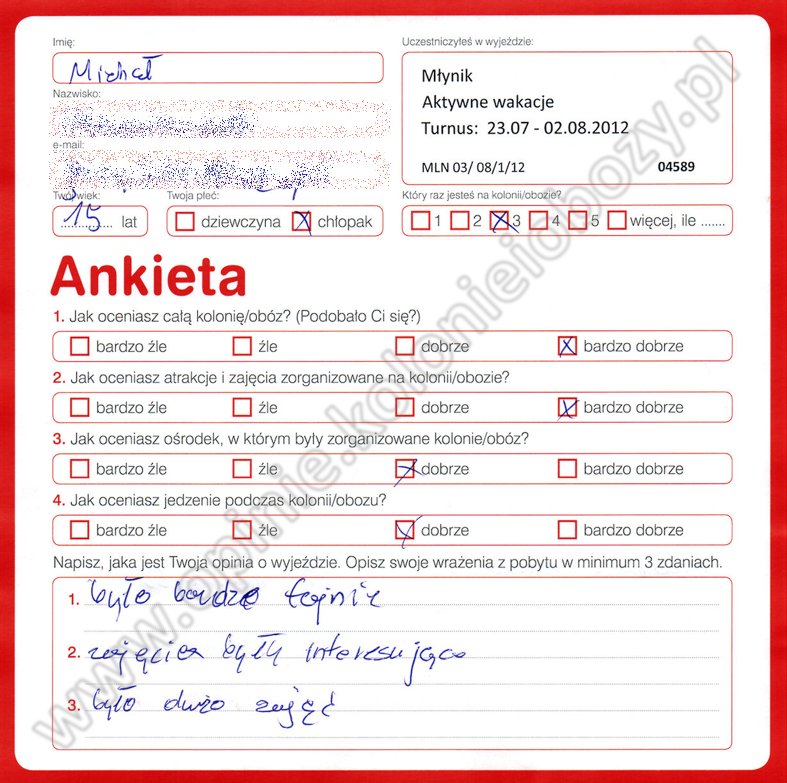 Imię:
Michał
Nazwisko:
e-mail:
Twój wiek:
15 lat
Twoja płeć:
dziewczyna chłopak
Uczestniczyłeś w wyjeździe:
Młynik
Aktywne wakacje
Turnus: 23.07 - 02.08.2012
MLN 03/ 08/1/12 04589
Który raz jesteś na kolonii/obozie?
1 2 3 4 5 więcej, ile .......
Ankieta
1. Jak oceniasz całą kolonię/obóz? (Podobało Ci się?)
bardzo źle źle dobrze bardzo dobrze
2. Jak oceniasz atrakcje i zajęcia zorganizowane na kolonii/obozie?
bardzo źle źle dobrze bardzo dobrze
3. Jak oceniasz ośrodek, w którym były zorganizowane kolonie/obóz?
bardzo źle źle dobrze bardzo dobrze
4. Jak oceniasz jedzenie podczas kolonii/obozu?
bardzo źle źle dobrze bardzo dobrze
Napisz, jaka jest Twoja opinia o wyjeździe. Opisz swoje wrażenia z pobytu w minimum 3 zdaniach.
1. było bardzo fajnie
2. zajęcia były interesujące
3. było dużo zajęć
www.opinie.kolonieiobozy.pl